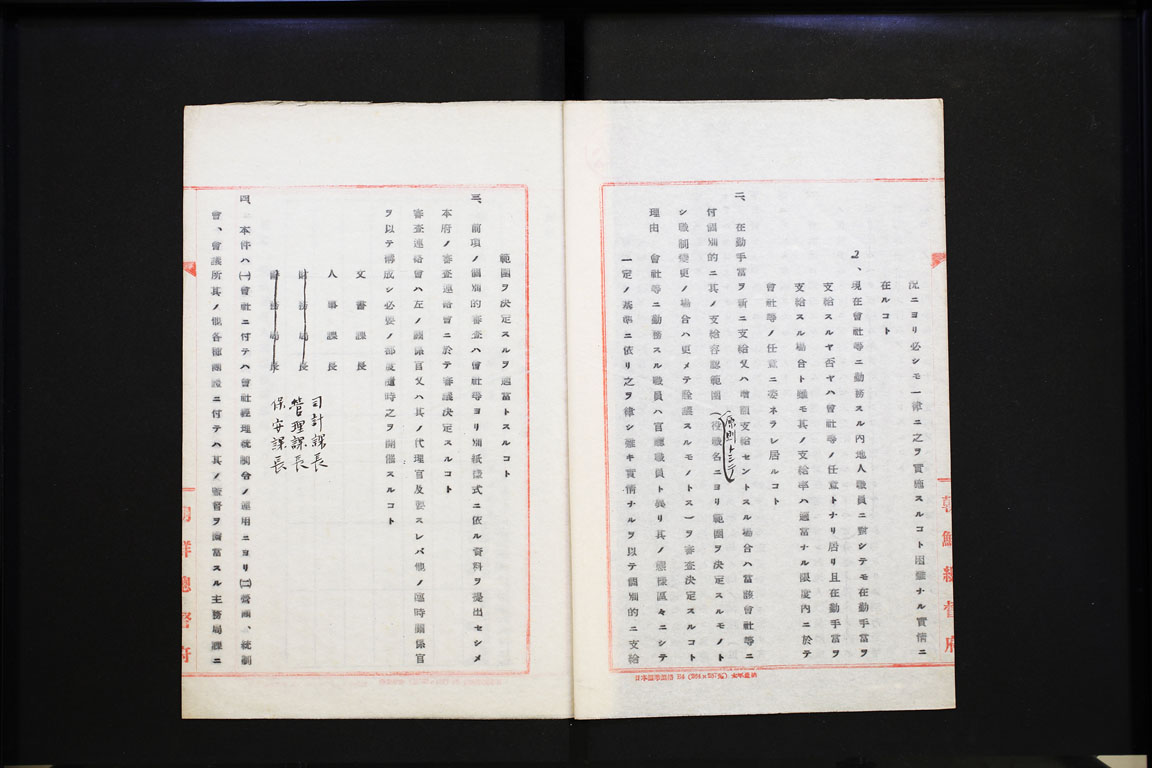 況ニヨリ必シモ一律ニ之ヲ實施スルコト困難ナル實情ニ
在ルコト
2、現在會社等ニ勤務スル內地人職員ニ對シテモ在勤手當ヲ
支給スルヤ否ヤハ會社等ノ任意トナリ居リ且在勤手當ヲ
支給スル場合ト雖モ其ノ支給率ハ適當ナル限度內ニ於テ
會社等ノ任意ニ委ネラレ居ルコト
二、在勤手當ヲ新ニ支給又ハ增額支給セントスル場合ハ當該會社等ニ
付個別的ニ其ノ支給容認範圍(原則トシテ役職名ニヨリ範圍ヲ決定スルモノト
シ職制變更ノ場合ハ更メテ詮議スルモノトス)ヲ審査決定スルコト
理由 會社等ニ勤務スル職員ハ官廳職員ト異リ其ノ態樣區々ニシテ
一定ノ基準ニ依リ之ヲ律シ難キ實情ナルヲ以テ個別的ニ支給
朝鮮總督府
範圍ヲ決定スルヲ適當トスルコト
三、前項ノ個別的審査ハ會社等ヨリ別紙樣式ニ依ル資料ヲ提出セシメ
本府ノ審査連絡會ニ於テ審議決定スルコト
審査連絡會ハ左ノ關係官又ハ其ノ代理官及要スレバ他ノ臨時關係官
ヲ以テ構成シ必要ノ都度隨時之ヲ開催スルコト
文書課長
人事課長
財務局長 司計課長
管理課長
警務局長 保安課長
四、本件ハ(一)會社ニ付テハ會社經理統制令ノ運用ニヨリ(二)營團、統制
會、會議所其ノ他各種團體ニ付テハ其ノ監督ヲ擔當スル主務局課ニ
朝鮮總督府